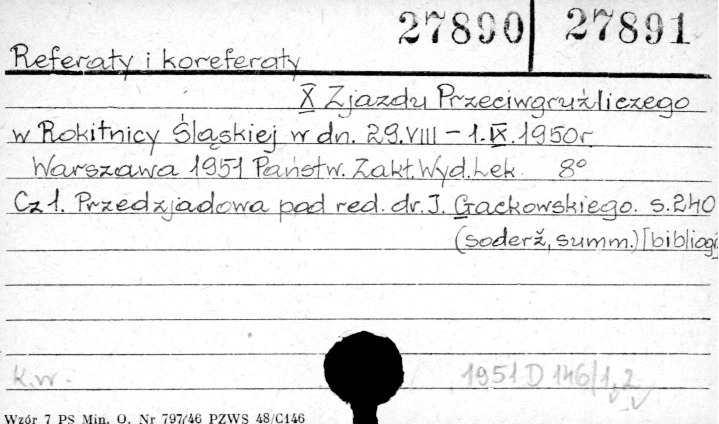 27890 27891
Referaty i koreferaty
X Zjazdu Przeciwgruźliczego
w Rokitnicy Śląskiej w dn. 29.VIII – 1.IX.1950r
Warszawa 1951 Państw. Zakł.Wyd.Lek. 8°
Cz 1. Przedzjadowa pod red. dr. J. Gackowskiego. s.240
(soderž, summ.) [bibliogr
k.w.
1951 D 146/1,2
Wzór 7 PS Min. O. Nr 797/46 PZWS 48/C146